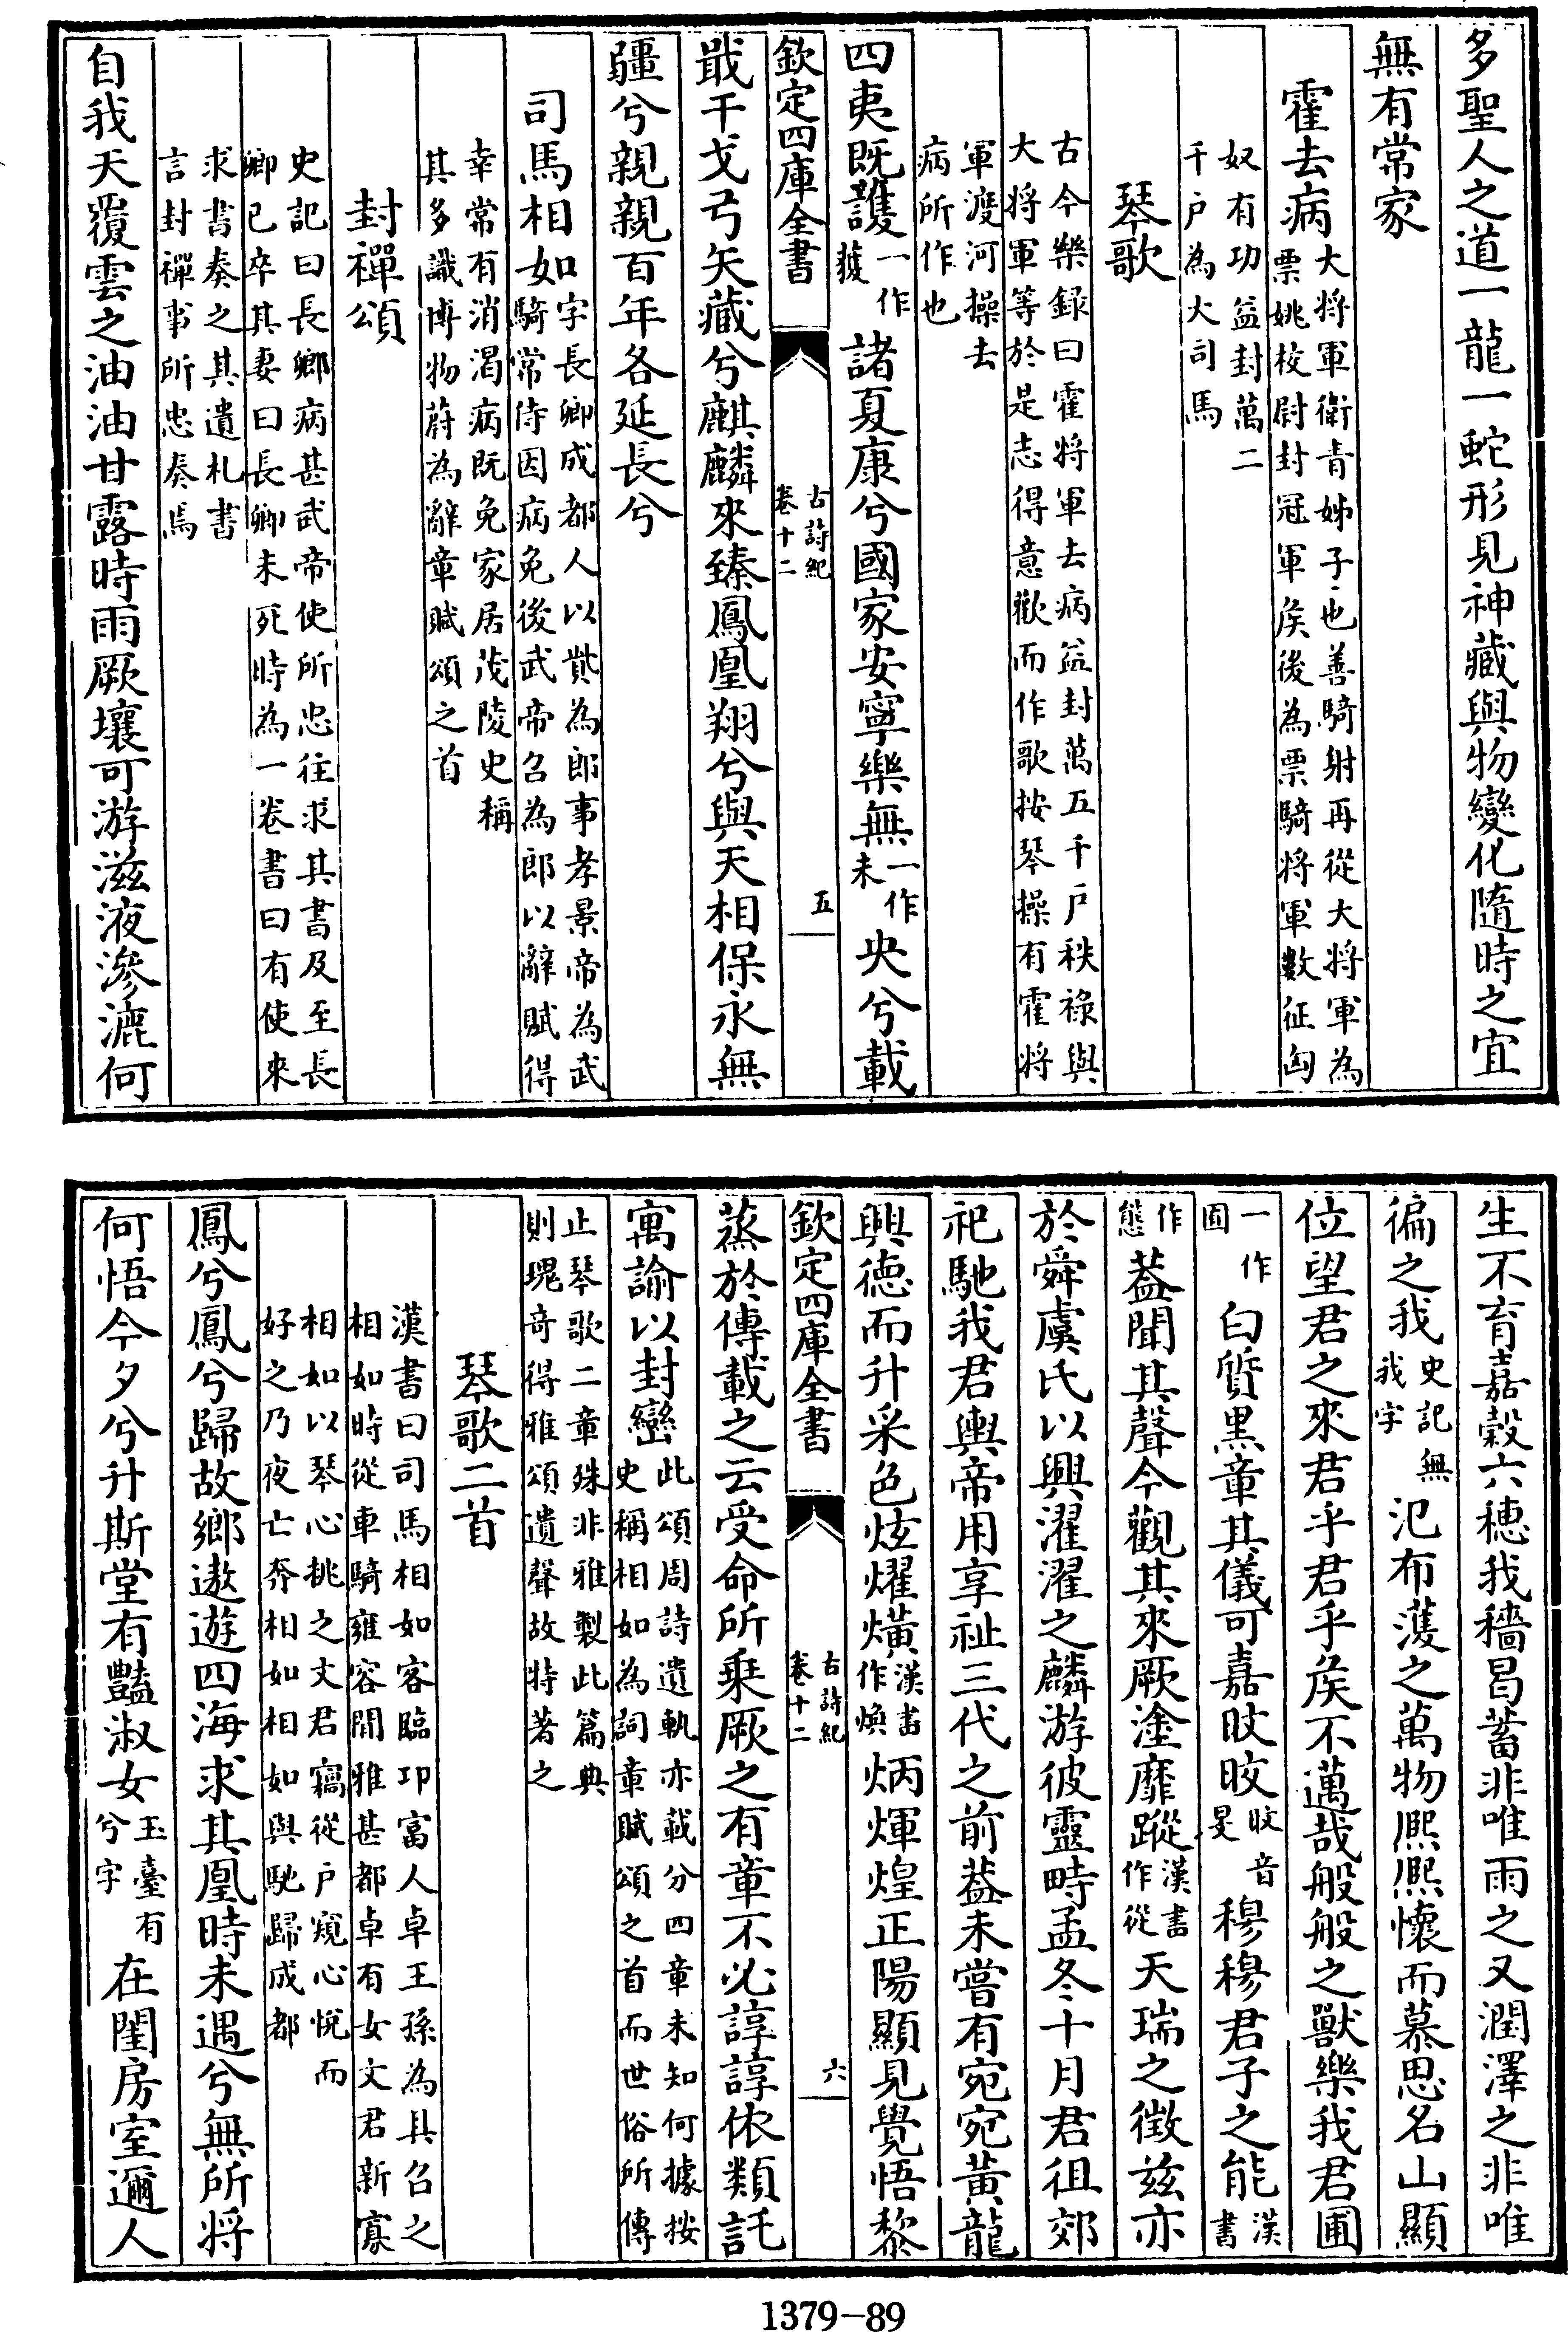 多聖人之道一龍一蛇形見神藏與物變化隨時之宜
無有常家
霍去病大將軍衛青姊子也善騎射再從大將軍為
票姚校尉封冠軍侯後為票騎將軍數征匈
奴有功益封萬二
千戶為大司馬
琴歌
古今樂録曰霍將軍去病益封萬五千戶秩祿與
大將軍等於是志得意歡而作歌按琴操有霍將
軍渡河操去
病所作也
四夷既護一作獲諸夏康兮國家安寧樂無一作未央兮載
欽定四庫全書
古詩紀
卷十二
五
戢干戈弓矢藏兮麒麟來臻鳳凰翔兮與天相保永無
疆兮親親百年各延長兮
司馬相如字長卿成都人以貲為郎事孝景帝為武
騎常侍因病免後武帝召為郎以辭賦得
幸常有消渴病既免家居茂陵史稱
其多識博物蔚為辭章賦頌之首
封禪頌
史記曰長卿病甚武帝使所忠往求其書及至長
卿已卒其妻曰長卿未死時為一卷書曰有使來
求書奏之其遺札書
言封禪事所忠奏焉
自我天覆雲之油油甘露時雨厥壤可游滋液滲漉何
生不育嘉穀六穗我穡曷蓄非唯雨之又潤澤之非唯
徧之我史記無我字氾布濩之萬物熙熙懷而慕思名山顯
位望君之來君乎君乎侯不邁哉般般之獸樂我君圃
一作囿白質黒章其儀可嘉旼旼旼音旻穆穆君子之能漢書
作態蓋聞其聲今觀其來厥塗靡蹤漢書作從天瑞之徴兹亦
於舜虞氏以興濯濯之麟游彼靈畤孟冬十月君徂郊
祀馳我君輿帝用享祉三代之前蓋未嘗有宛宛黄龍
興德而升采色炫燿熿漢書作煥炳煇煌正陽顯見覺悟黎
欽定四庫全書
古詩紀
卷十二
六
蒸於傳載之云受命所乗厥之有章不必諄諄依類託
寓諭以封巒此頌周詩遺軌亦載分四章未知何據按
史稱相如為詞章賦頌之首而世俗所傳
止琴歌二章殊非雅製此篇典
則瑰奇得雅頌遺聲故特著之
琴歌二首
漢書曰司馬相如客臨卭富人卓王孫為具召之
相如時從車騎雍容閒雅甚都卓有女文君新寡
相如以琴心挑之文君竊從戶窺心悅而
好之乃夜亡奔相如相如與馳歸成都
鳳兮鳳兮歸故鄉遨遊四海求其凰時未遇兮無所將
何悟今夕兮升斯堂有豔淑女玉臺有兮字在閨房室邇人
1379-89